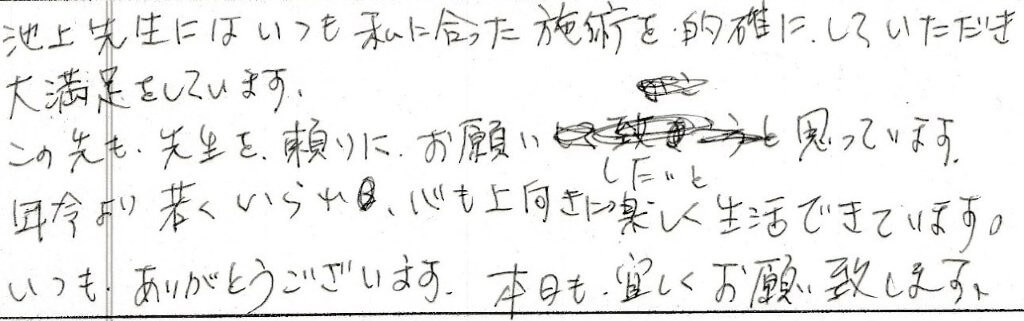 池上先生にはいつも私に合った施術を的確に、していただき
大満足をしています。
この先も、先生を、頼りに、お願いしたいと思っています。
年令より若くいられ、心も上向きに楽しく生活できています。
いつも、ありがとうございます。本日も、宜しくお願い致します。